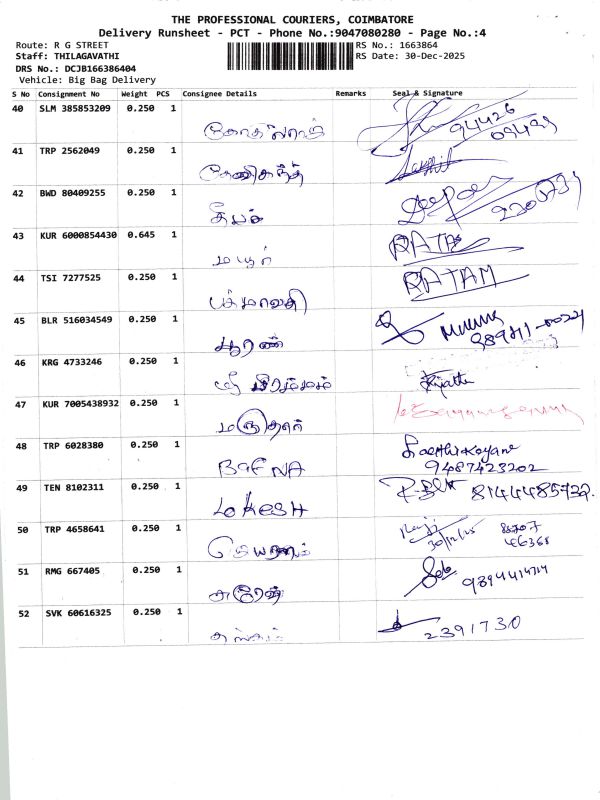 THE PROFESSIONAL COURIERS, COIMBATORE
Delivery Runsheet - PCT - Phone No.:9047080280 - Page No.:4
Route: R G STREET RS No.: 1663864
Staff: THILAGAVATHI RS Date: 30-Dec-2025
DRS No.: DCJB166386404
Vehicle: Big Bag Delivery
S No Consignment No Weight PCS Consignee Details Remarks Seal & Signature
40 SLM 385853209 0.250 1 94426
41 TRP 2562049 0.250 1
42 BWD 80409255 0.250 1 தீபம்
43 KUR 6000854430 0.645 1 மயூர்
44 TSI 7277525 0.250 1 பத்மாவதி RATAM
45 BLR 516034549 0.250 1 ஆரண்
46 KRG 4733246 0.250 1 ஸ்ரீ
47 KUR 7005438932 0.250 1 மருதார்
48 TRP 6028380 0.250 1 BAFNA Keerthikeyane
9487423202
49 TEN 8102311 0.250 1 LOKESH 8144485732.
50 TRP 4658641 0.250 1 30/12/25
51 RMG 667405 0.250 1 சுரேஷ்
52 SVK 60616325 0.250 1 2391730